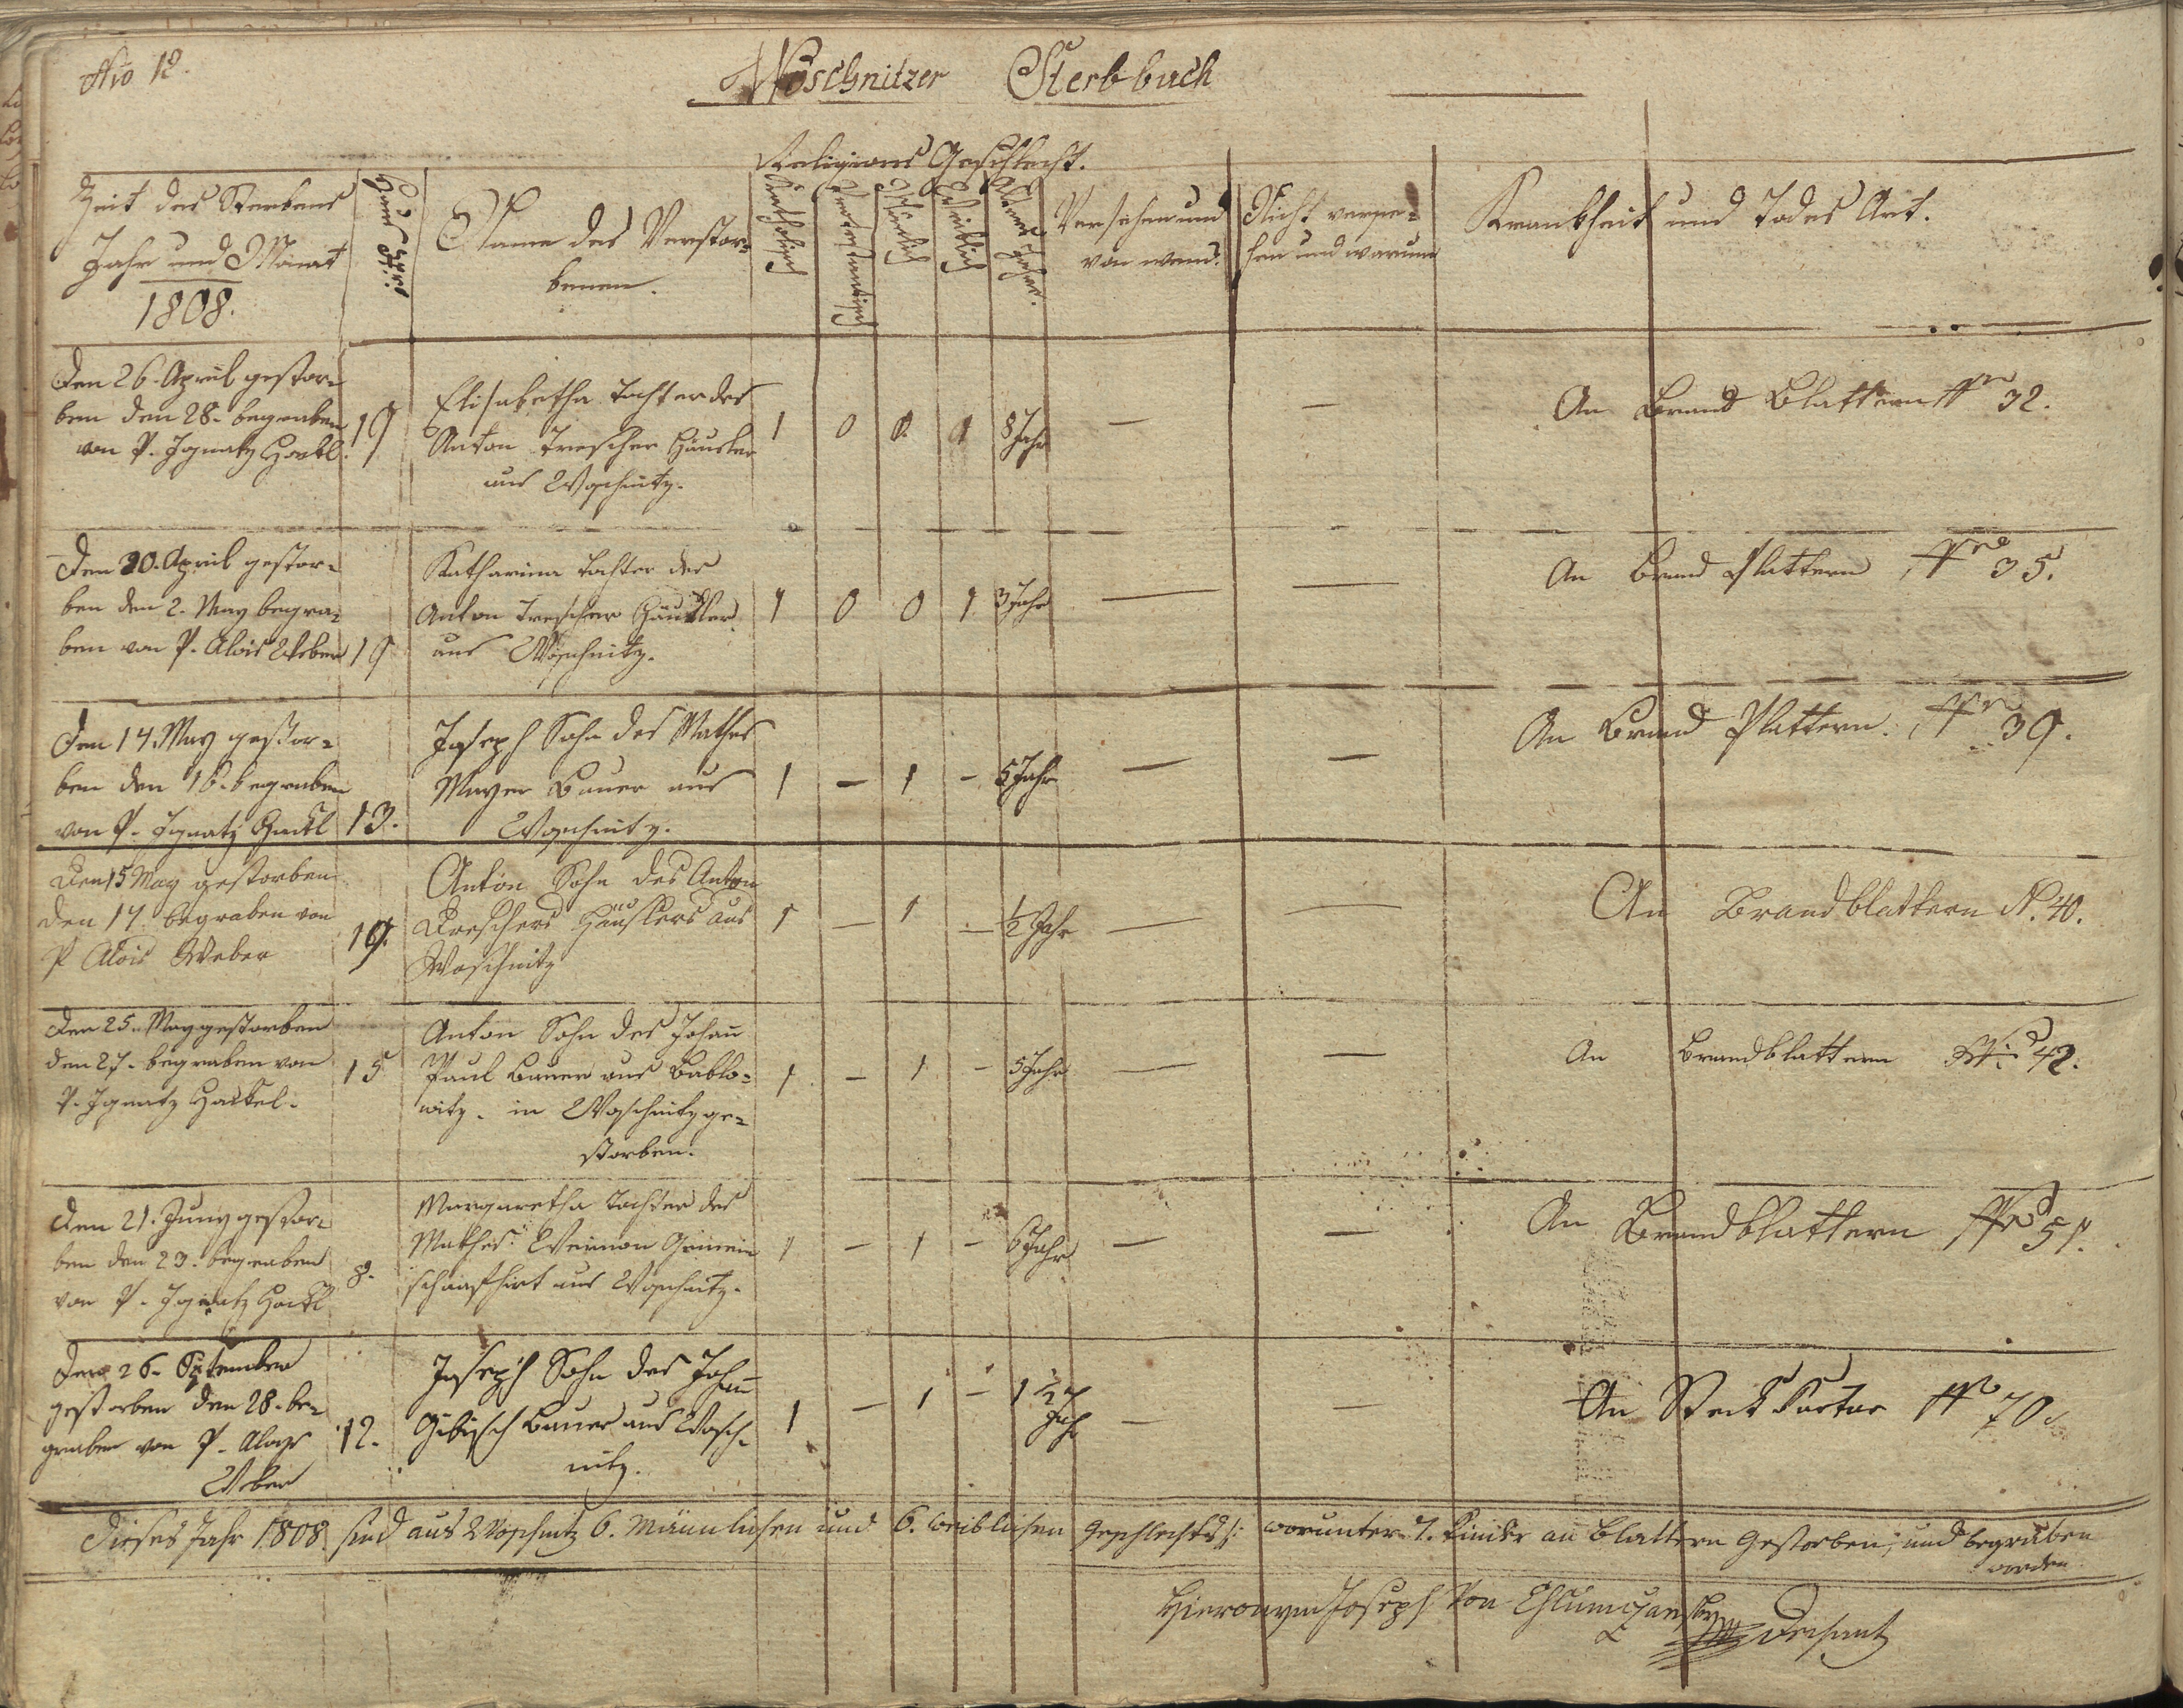 Nro 12.
Woschnitzer Sterbbuch
Religions Geschlecht.
Zeit des Sterbens
Jahr und Monat
1808.
Haus Nro
Name des Verstor-
benen.
Katholisch
Protestantisch
Männlich
Weiblich
Jahre
Versehen und
von wem?
Nicht verse-
hen und warum
Krankheit und Todes Art.
Den 26. April gestor-
ben den 28. begraben
von P. Ignatz Hackl.
19
Elisabetha Tochter des
Anton Trescher Häusler
aus Woschnitz.
1 0 0 1 8 Jahr — —
An Brand Blattern Nro 32.
Den 30. April gestor-
ben den 2. May begra-
ben von P. Alois Weber
19
Katharina Tochter des
Anton Trescher Häusler
aus Woschnitz.
1 0 0 1 3 Jahr — —
An Brand Plattern Nro 35.
Den 14. May gestor-
ben den 16. begraben
von P. Ignatz Hackl
13.
Joseph Sohn des Mathes
Mayer Bauer aus
Woschnitz.
1 – 1 – 5 Jahr — —
An Brand Plattern. Nro 39.
Den 15 May gestorben
den 17. begraben von
P Alois Weber
19.
Anton Sohn des Anton
Dreschers Häuslers aus
Woschnitz
1 – 1 – ½ Jahr — —
An Brandblattern N. 40.
Den 25. May gestorben
den 27. begraben von
P. Ignatz Hackel.
15
Anton Sohn des Johann
Paul Bauer aus Bablo-
witz. in Woschnitz ge-
storben.
1 – 1 – 5 Jahr — —
An Brandblattern Nro 42.
Den 21. Juny gestor-
ben den 23. begraben
von P. Ignatz Hackl
8.
Margaretha Tochter des
Mathes Weimon Gemein
schaafhirt aus Woschnitz.
1 – 1 – 6 Jahr — —
An Brandblattern Nro 51.
Den 26. September
gestorben den 28. be-
graben von P. Aloys
Weber
12.
Joseph Sohn des Johann
Gibisch Bauer aus Wosch-
nitz.
1 – 1 – 1 ½ Jahr — —
An Steck Kartar Nro 70.
Dieses Jahr 1808 sind aus Woschnitz 6. Männlichen und 6. weiblichen Geschlechts /: worunter 7. Kinder an Blattern Gestorben, und begraben
worden
Hieronym Joseph von Chlumczansky
Dechant